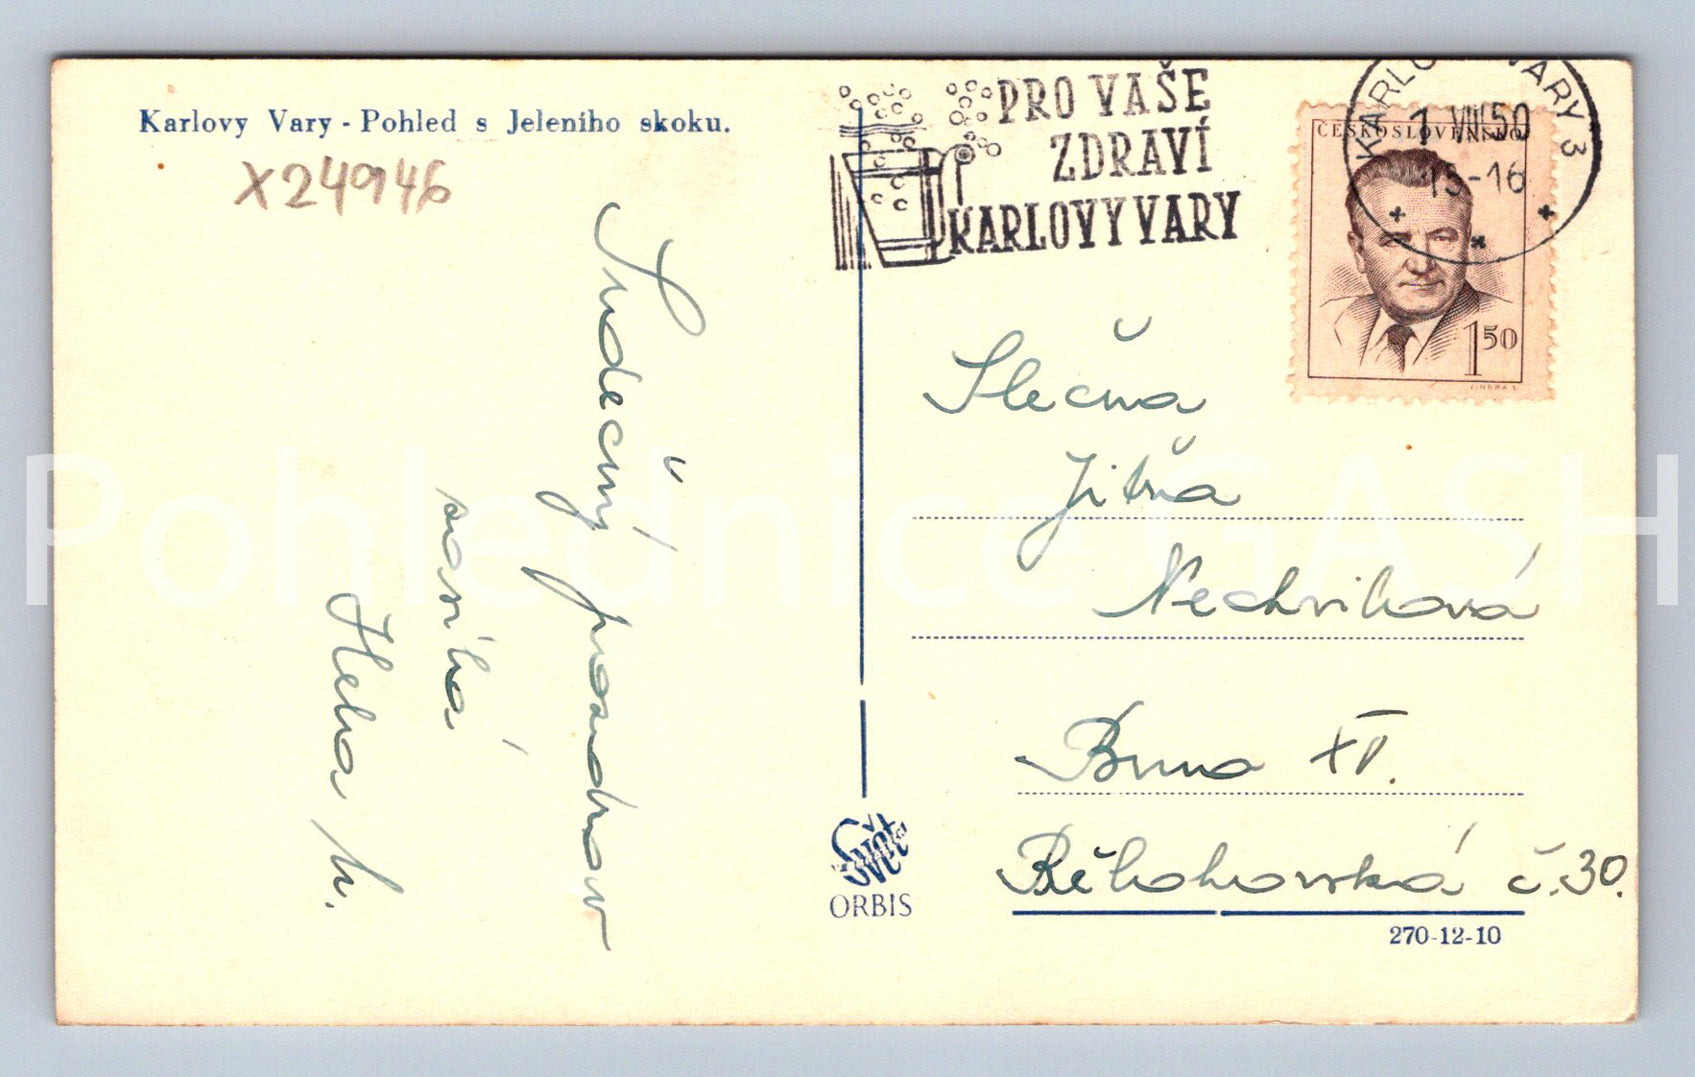 Karlovy Vary - Pohled s Jeleního skoku.
X24946
PRO VAŠE
ZDRAVÍ
KARLOVY VARY
KARLOVY VARY 3
1 VIII 50
15-16
ČESKOSLOVENSKO
1 50
Srdečný pozdrav
zasílá
Hela
Slečna
Jitka
Nechvílová
Brno XV.
Bělohorská č. 30.
Svět
ORBIS
270-12-10
Pohlednice GASH